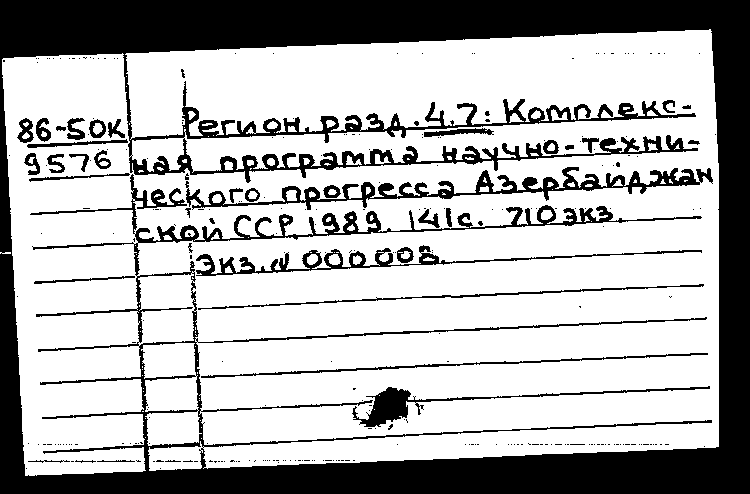 86-50к Регион. разд. 4.7: Комплекс-
9576 ная программа научно-техни-
ческого прогресса Азербайджан
ской ССР. 1989. 141с. 710 экз.
Экз. N 000008.